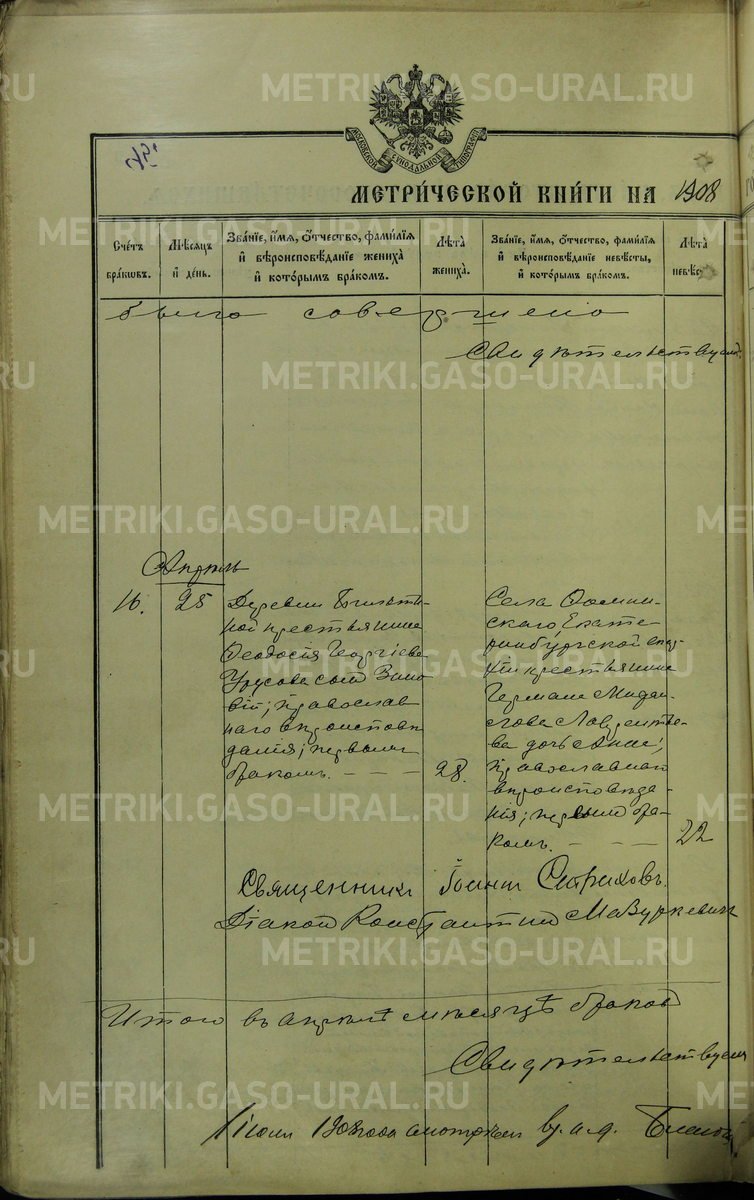 МОСКОВСКОЙ СѴНОДАЛЬНОЙ ТИПОГРАФІИ
МЕТРИ́ЧЕСКОЙ КНИ́ГИ НА 1908
Сче́тъ бра́ковъ.
Мѣ́сяцъ и́ де́нь.
Зва́нїе, и́мѧ, ѻ҆́тчество, фами́лїѧ и҆ вѣроисповѣ́данїе жениха̀ и҆ кото́рымъ бра́комъ.
Лѣ̑та жениха̀.
Зва́нїе, и́мѧ, ѻ҆́тчество, фами́лїѧ и҆ вѣроисповѣ́данїе невѣ́сты, и҆ кото́рымъ бра́комъ.
Лѣ̑та невѣс
было совершено
Свидѣтельствуемъ
Апрѣль
16.
25
Деревни
ной крестьянина
Ѳеодосія Георгіева
Урусова сынъ Зино
вій; православ
наго вѣроисповѣ
данія; первымъ
бракомъ. - - -
28.
Села Ѳомин-
скаго, Екате-
ринбургской
крестьянина
Германа
лова Лаврентье
ва дочь Анна;
православнаго
вѣроисповѣда-
нія; первымъ бра-
комъ. - - -
22
Священникъ Іоаннъ Стариковъ.
Діаконъ Константинъ Мазуркевичъ
Итого въ апрѣлѣ мѣсяцѣ браковъ
Свидѣтельствуемъ
1908 года смотрѣлъ
METRIKI.GASO-URAL.RU